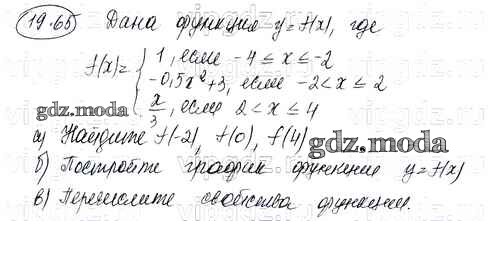 19.65 Дана функция y=f(x), где
f(x)= { 1, если -4 ≤ x ≤ -2
-0,5x²+3, если -2 < x ≤ 2
x/3, если 2 < x ≤ 4
gdz.moda
а) Найдите f(-2), f(0), f(4)
gdz.moda
б) Постройте график функции y=f(x)
в) Перечислите свойства функции.